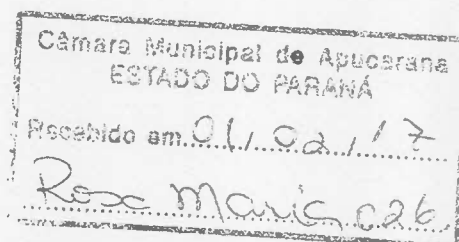 Câmara Municipal de Apucarana
ESTADO DO PARANÁ
Recebido em 01, 02, 17
Rosc Maria c26